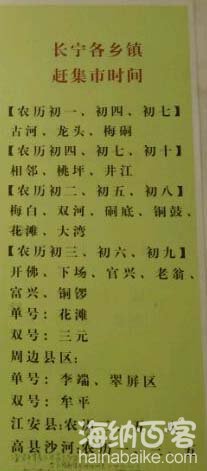 长宁各乡镇
赶集市时间
【农历初一、初四、初七】
古河、龙头、梅硐
【农历初四、初七、初十】
相邻、桃坪、井江
【农历初二、初五、初八】
梅白、双河、硐底、铜鼓、
花滩、大湾
【农历初三、初六、初九】
开佛、下场、官兴、老翁、
富兴、铜锣
单号：花滩
双号：三元
周边县区：
单号：李端、翠屏区
双号：牟平
江安县：农
高县沙河：农历
海纳百客
hainabaike.com